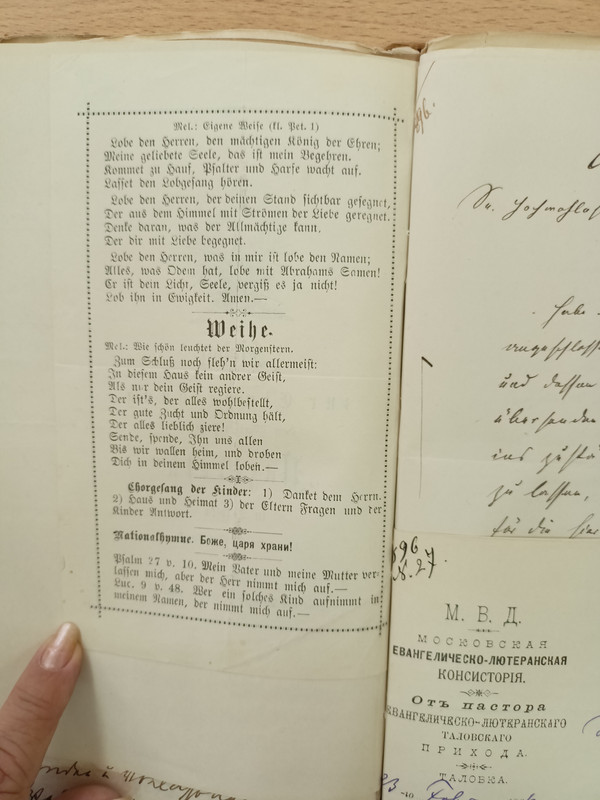 Mel.: Eigene Weise (kl. Pet. 1)
Lobe den Herren, den mächtigen König der Ehren;
Meine geliebete Seele, das ist mein Begehren.
Kommet zu Hauf, Psalter und Harfe wacht auf.
Lasset den Lobgesang hören.
Lobe den Herren, der deinen Stand sichtbar gesegnet,
Der aus dem Himmel mit Strömen der Liebe geregnet.
Denke daran, was der Allmächtige kann,
Der dir mit Liebe begegnet.
Lobe den Herren, was in mir ist lobe den Namen;
Alles, was Odem hat, lobe mit Abrahams Samen!
Er ist dein Licht, Seele, vergiß es ja nicht!
Lob ihn in Ewigkeit. Amen.—
Weihe.
Mel.: Wie schön leuchtet der Morgenstern.
Zum Schluß noch fleh'n wir allermeist:
In diesem Haus kein andrer Geist,
Als nur dein Geist regiere.
Der ist's, der alles wohlbestellt,
Der gute Zucht und Ordnung hält,
Der alles lieblich ziere!
Sende, spende, Ihn uns allen
Bis wir wallen heim, und droben
Dich in deinem Himmel loben.—
Chorgesang der Kinder: 1) Danket dem Herrn.
2) Haus und Heimat 3) der Eltern Fragen und der
Kinder Antwort.
Nationalhymne. Боже, царя храни!
Psalm 27 v. 10. Mein Vater und meine Mutter ver-
lassen mich, aber der Herr nimmt mich auf.—
Luc. 9 v. 48. Wer ein solches Kind aufnimmt in
meinem Namen, der nimmt mich auf.—
96.
Habe
und dessen
übersenden
zu lassen,
für die hier
896
N. 27.
М. В. Д.
МОСКОВСКАЯ
ЕВАНГЕЛИЧЕСКО-ЛЮТЕРАНСКАЯ
КОНСИСТОРІЯ.
Отъ пастора
ЕВАНГЕЛИЧЕСКО-ЛЮТЕРАНСКАГО
ТАЛОВСКАГО
ПРИХОДА.
ТАЛОВКА.
23
-го